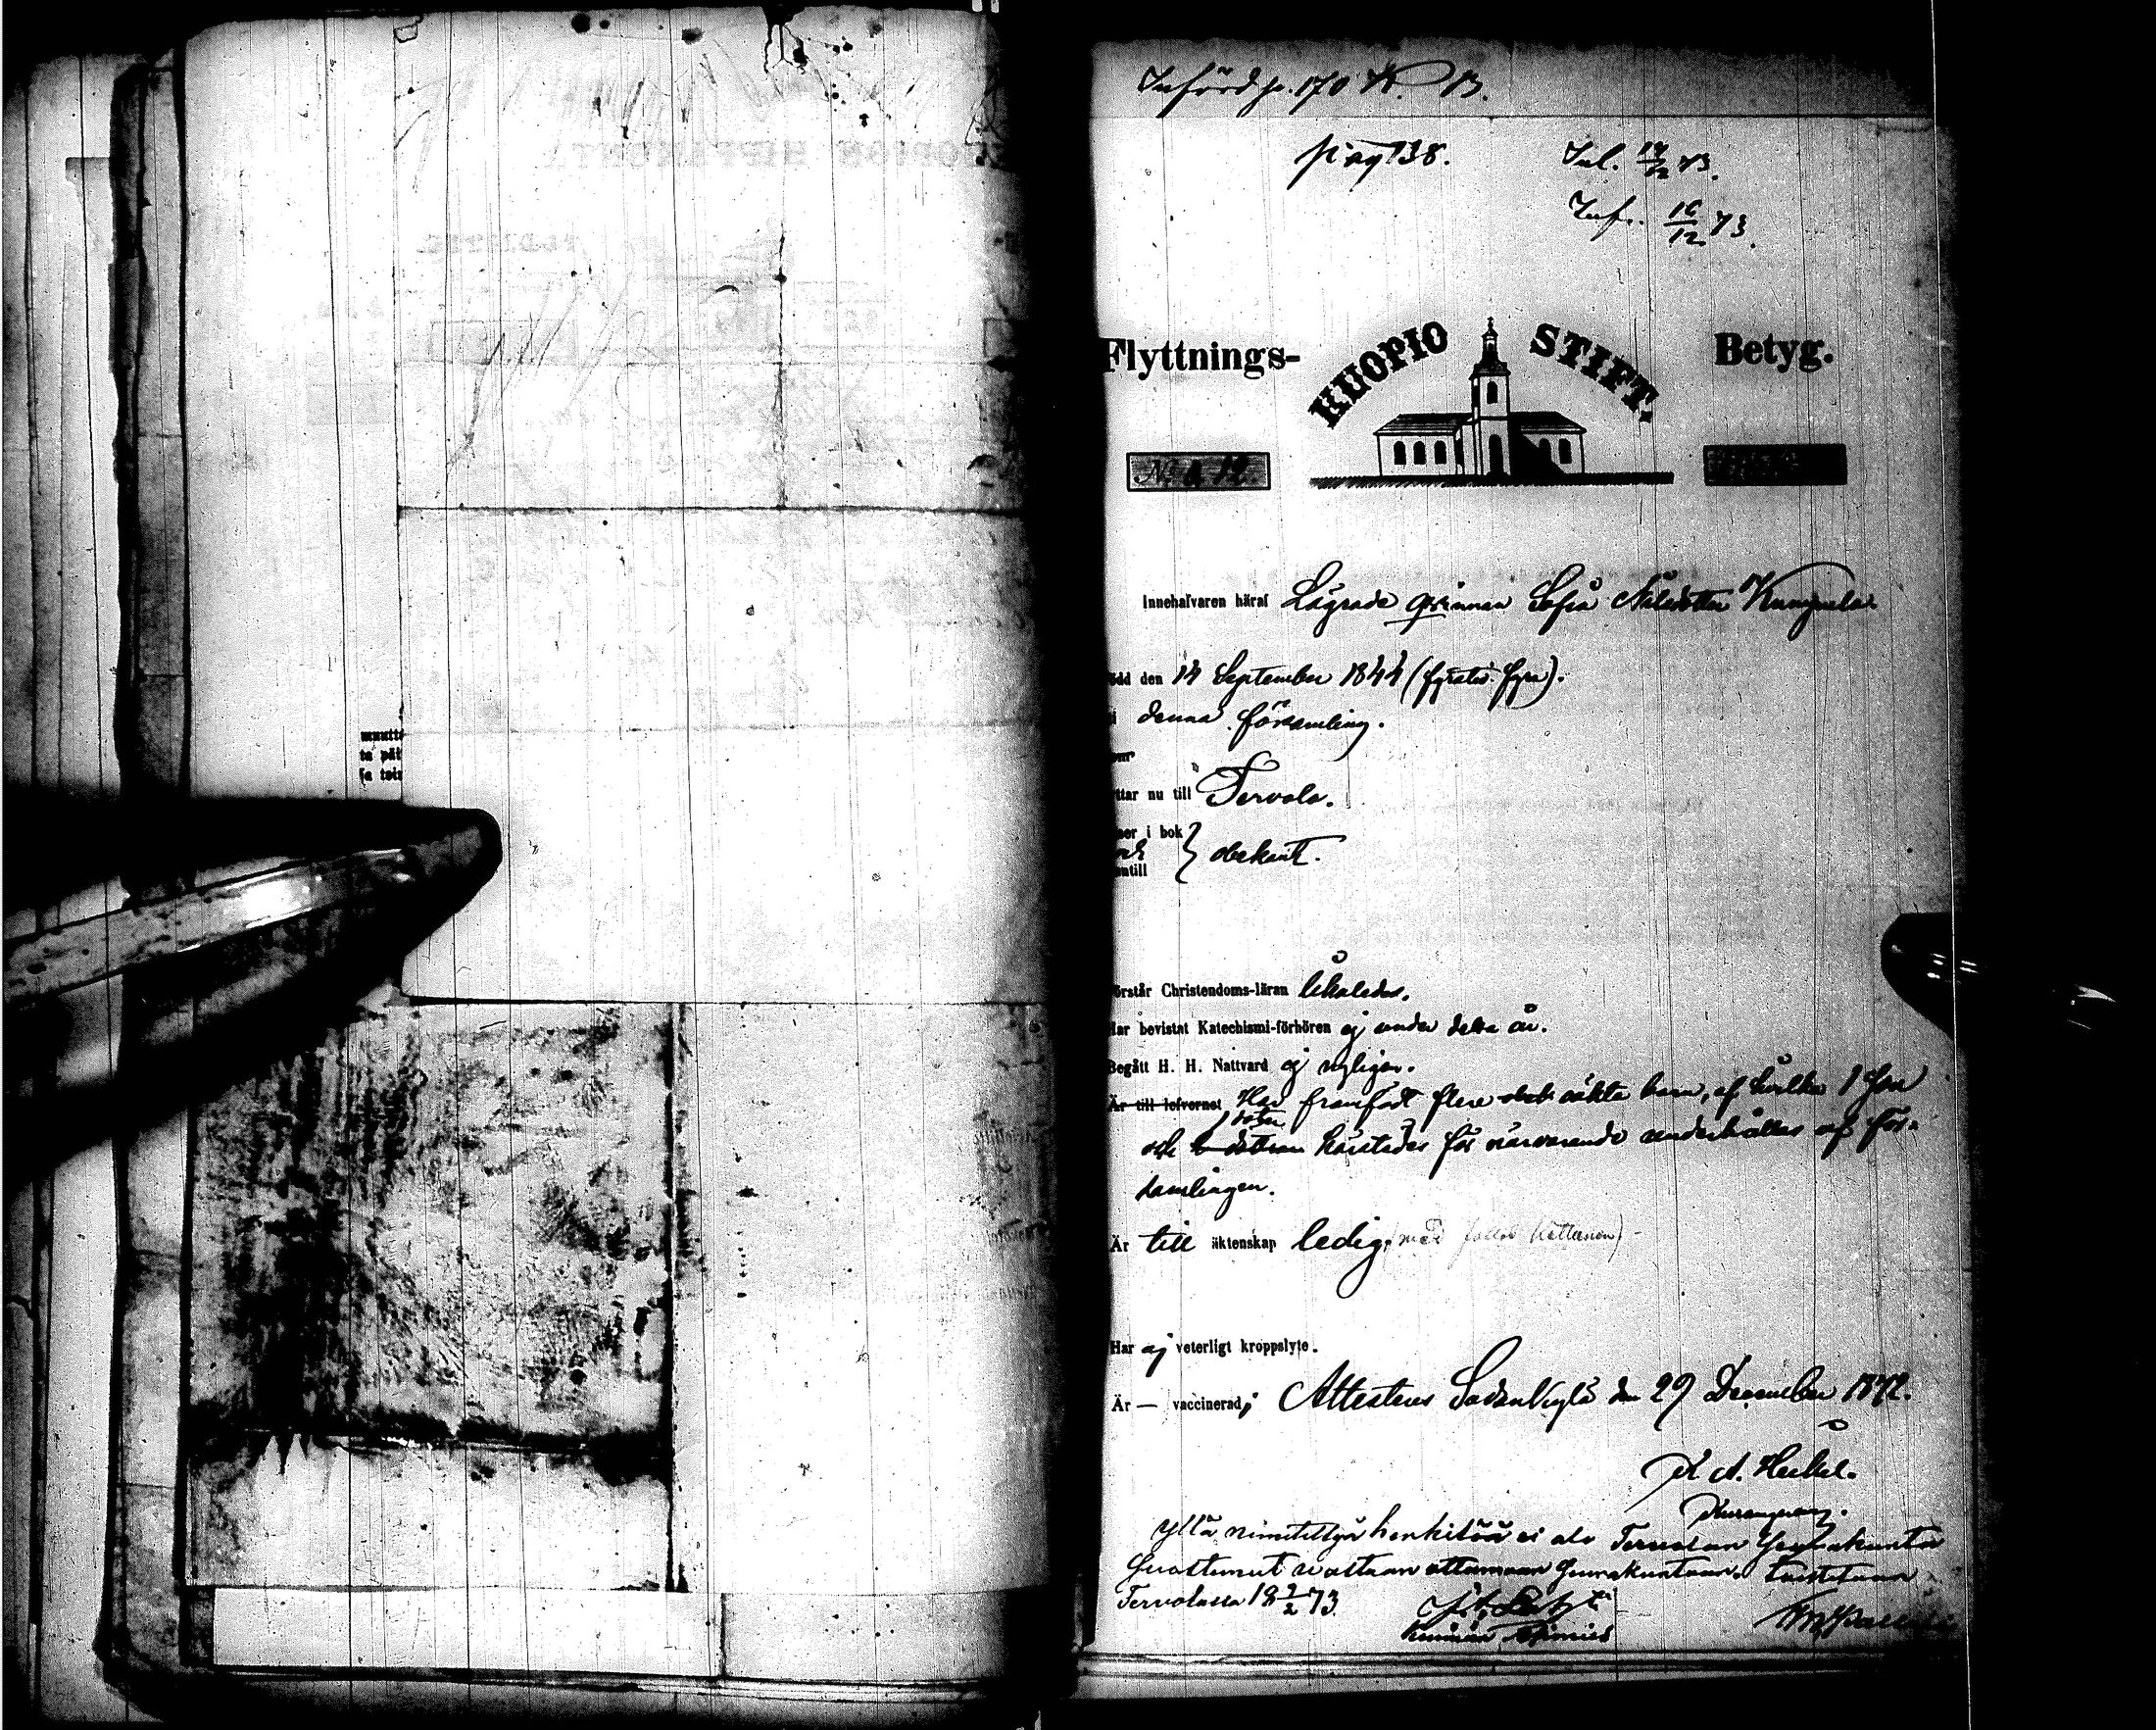 Införd p. 170 K. B.
pag 138.
Inl. 14/12 73.
Inf. 16/12 73.
Flyttnings-
KUOPIO STIFT.
Betyg.
No 12.
Innehafvaren häraf Lägrade qvinnan Sofia Nilsdotter
ödd den 14 September 1844 (fyratio fyra).
i denna församling.
ttar nu till Tervola.
ner i bok
och
entill
} obekant.
örstår Christendoms-läran likaledes.
Har bevistat Katechismi-förhören ej under detta år.
Begått H. H. Nattvard ej nyligen.
Är till lefvernet Har framfödt flere oäkta barn, af hvilka 1 son
och 1 dotter härstädes för närvarande underhålles af för-
samlingen.
Är till äktenskap ledig.
Har ej veterligt kroppslyte.
Är — vaccinerad; Attesteras Sodankylä den 29 December 1872.
K A. Heikel.
yllä nimitettyä henkilöä ei ole Tervolan Seurakunta
suostunut vastaan ottamaan seurakuntaan, todistaan
Tervolassa 18 2/2 73.
muutta
ta päi
ja toi